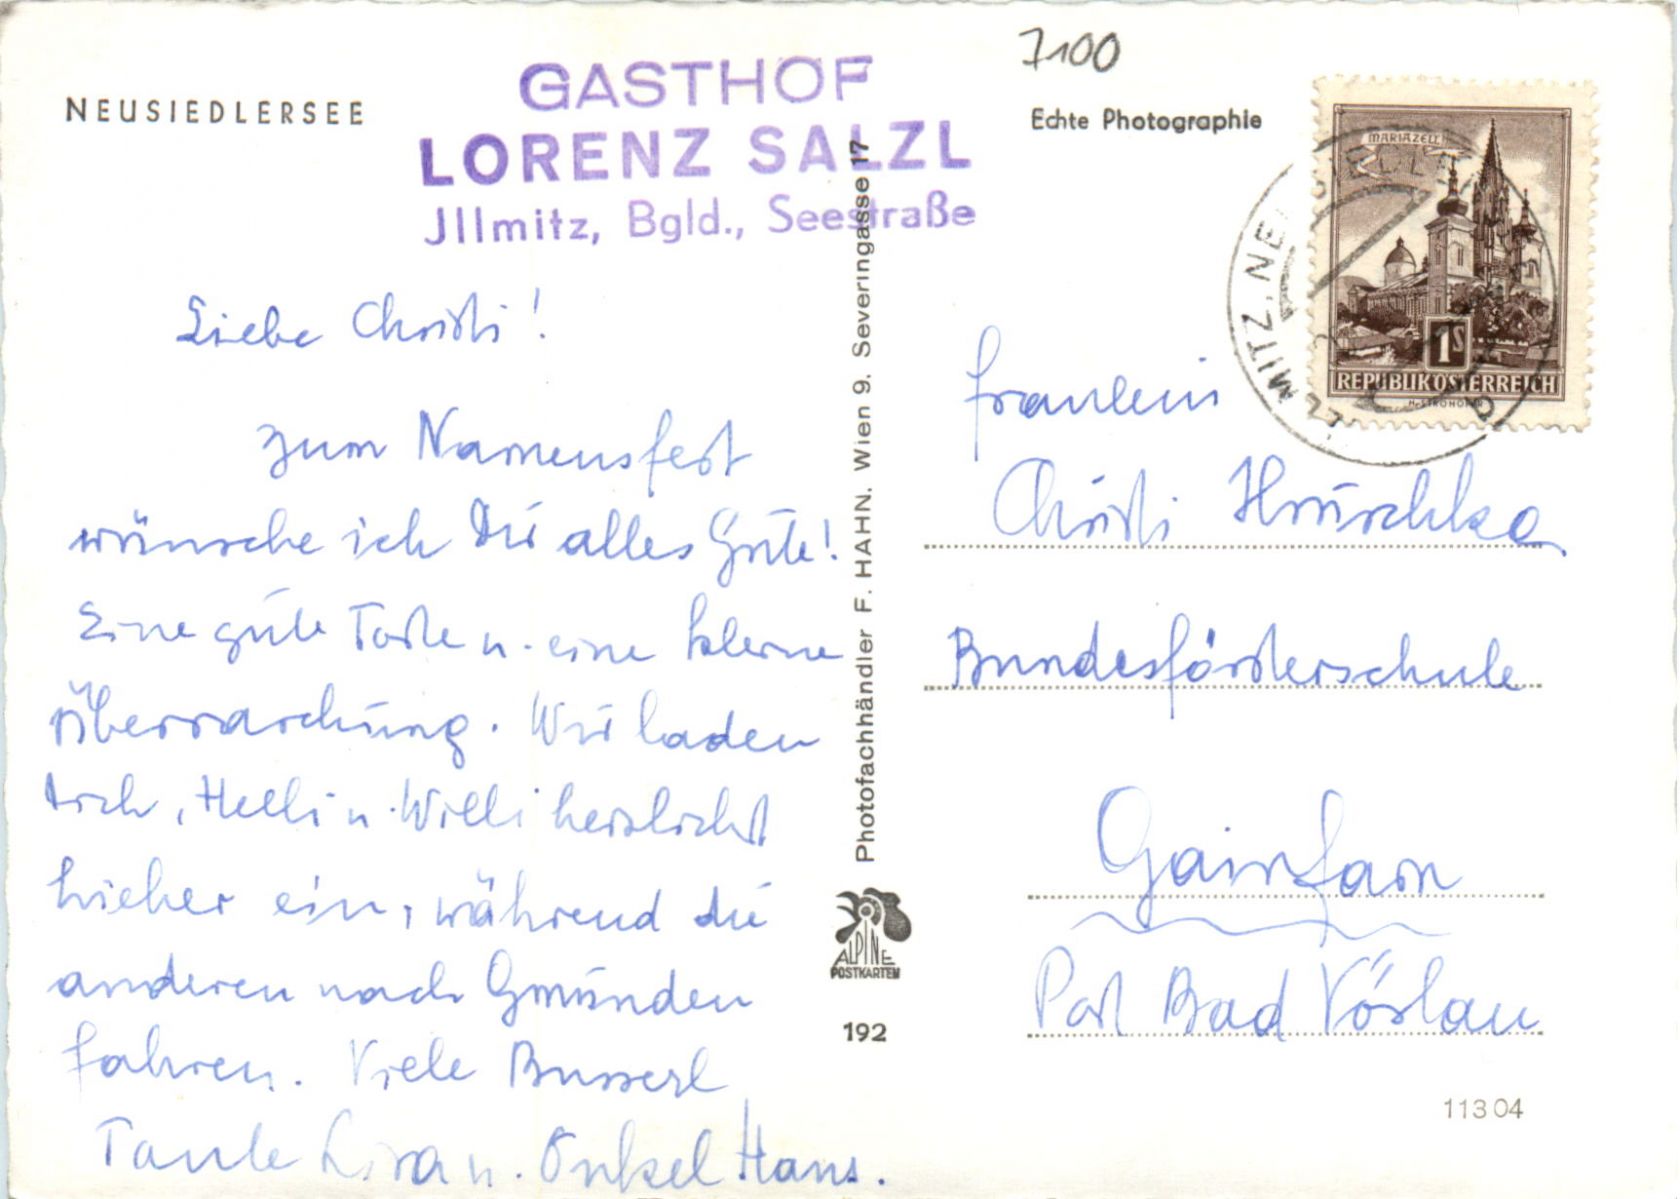 NEUSIEDLERSEE
GASTHOF
LORENZ SALZL
Jllmitz, Bgld., Seestraße
7100
Echte Photographie
MARIAZELL
1S
REPUBLIK ÖSTERREICH
Liebe Christi!
Zum Namensfest
wünsche ich Dir alles Gute!
Eine gute Torte u. eine kleine
Überraschung. Wir laden
Dich, Helli u. Willi herzlichst
hieher ein, während die
anderen nach Gmünden
fahren. Viele Busserl
Tante u. Onkel Hans.
Photofachhändler F. HAHN. Wien 9. Severingasse 17
ALPINE
POSTKARTEN
192
Fräulein
Christi Hruschka
Bundesförsterschule
Gainfarn
Post Bad Vöslau
11304